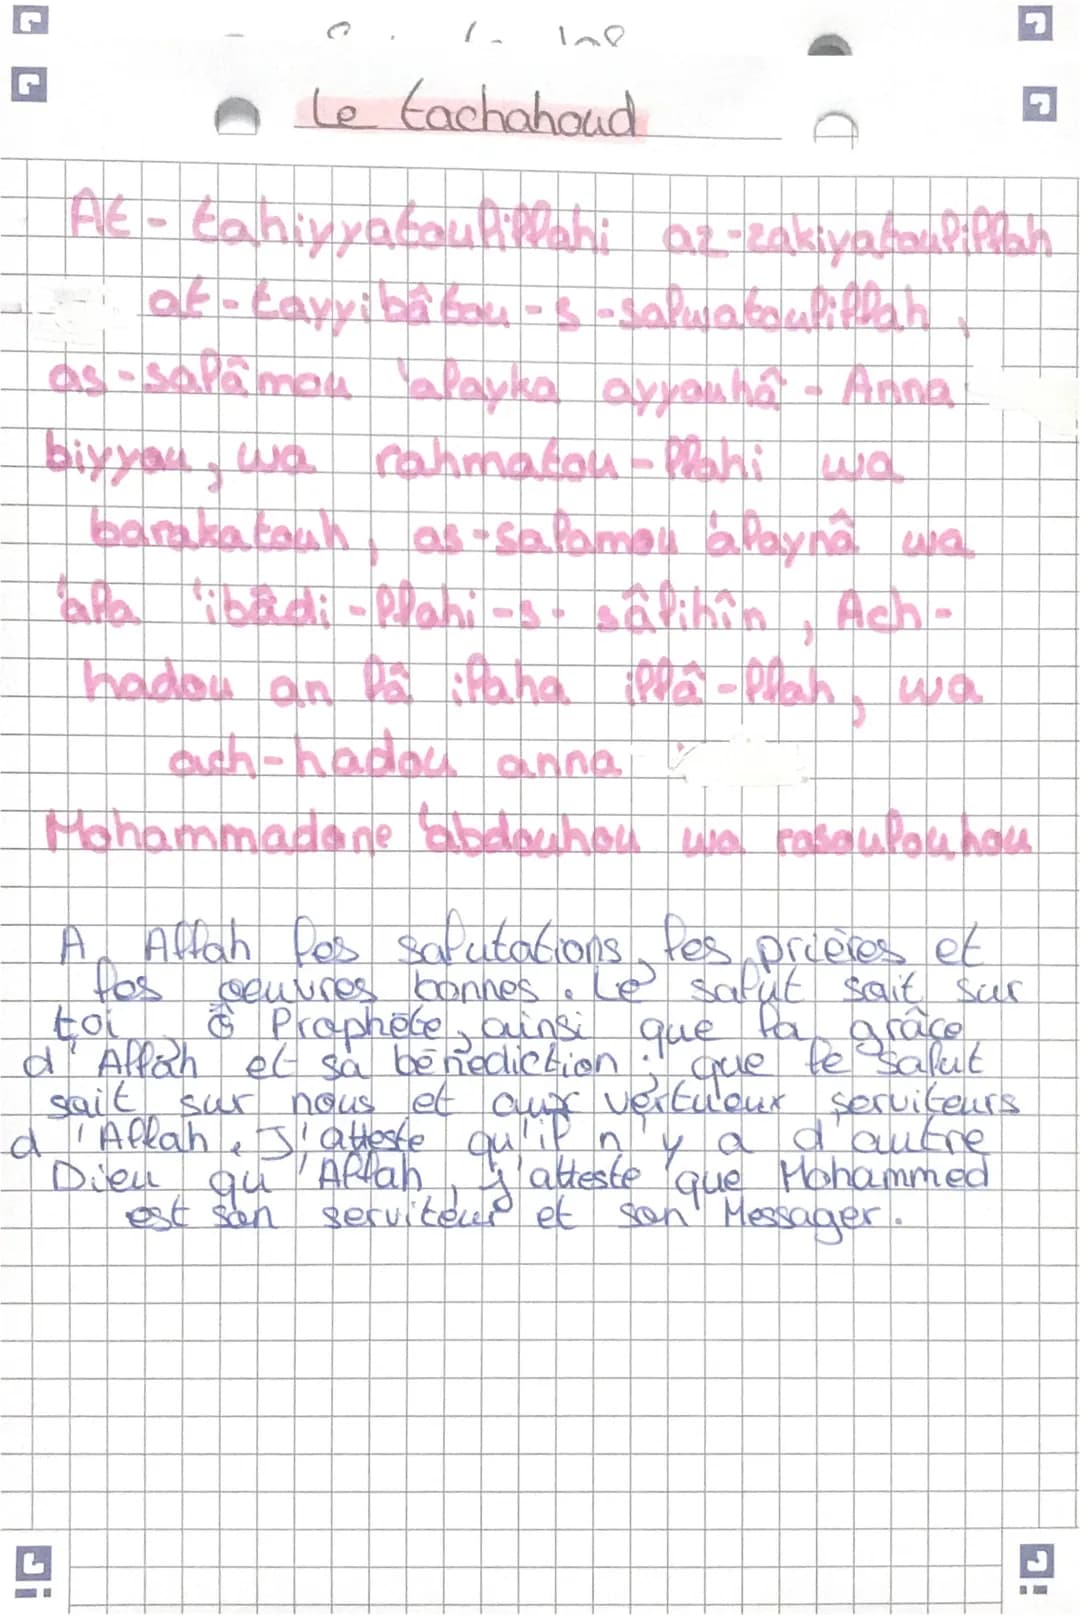 Le tachahoud
At-tahiyyatoulillahi az-zakiyatoulillah
at-tayyibâtou-s-salwatoulillah,
as-salâmou 'alayka ayyouhâ-Anna
biyyou, wa rahmatou-llahi wa
barakatouh, as-salamou 'alaynâ wa
'ala 'ibâdi-llahi-s-sâlihîn, Ach-
hadou an lâ ilaha illâ-llah, wa
ach-hadou anna
Mohammadane 'abdouhou wa rasoulouhou
A Allah les salutations, les prières et
les oeuvres bonnes. Le salut soit sur
toi ô Prophète, ainsi que la grâce
d'Allah et sa bénédiction; que le salut
soit sur nous et aux vertueux serviteurs
d'Allah. J'atteste qu'il n'y a d'autre
Dieu qu'Allah, j'atteste que Mohammed
est son serviteur et son Messager.